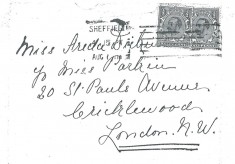 SHEFFIELD
Miss
c/o Miss Parkin
20 St Pauls Avenue
Cricklewood
London. N.W.